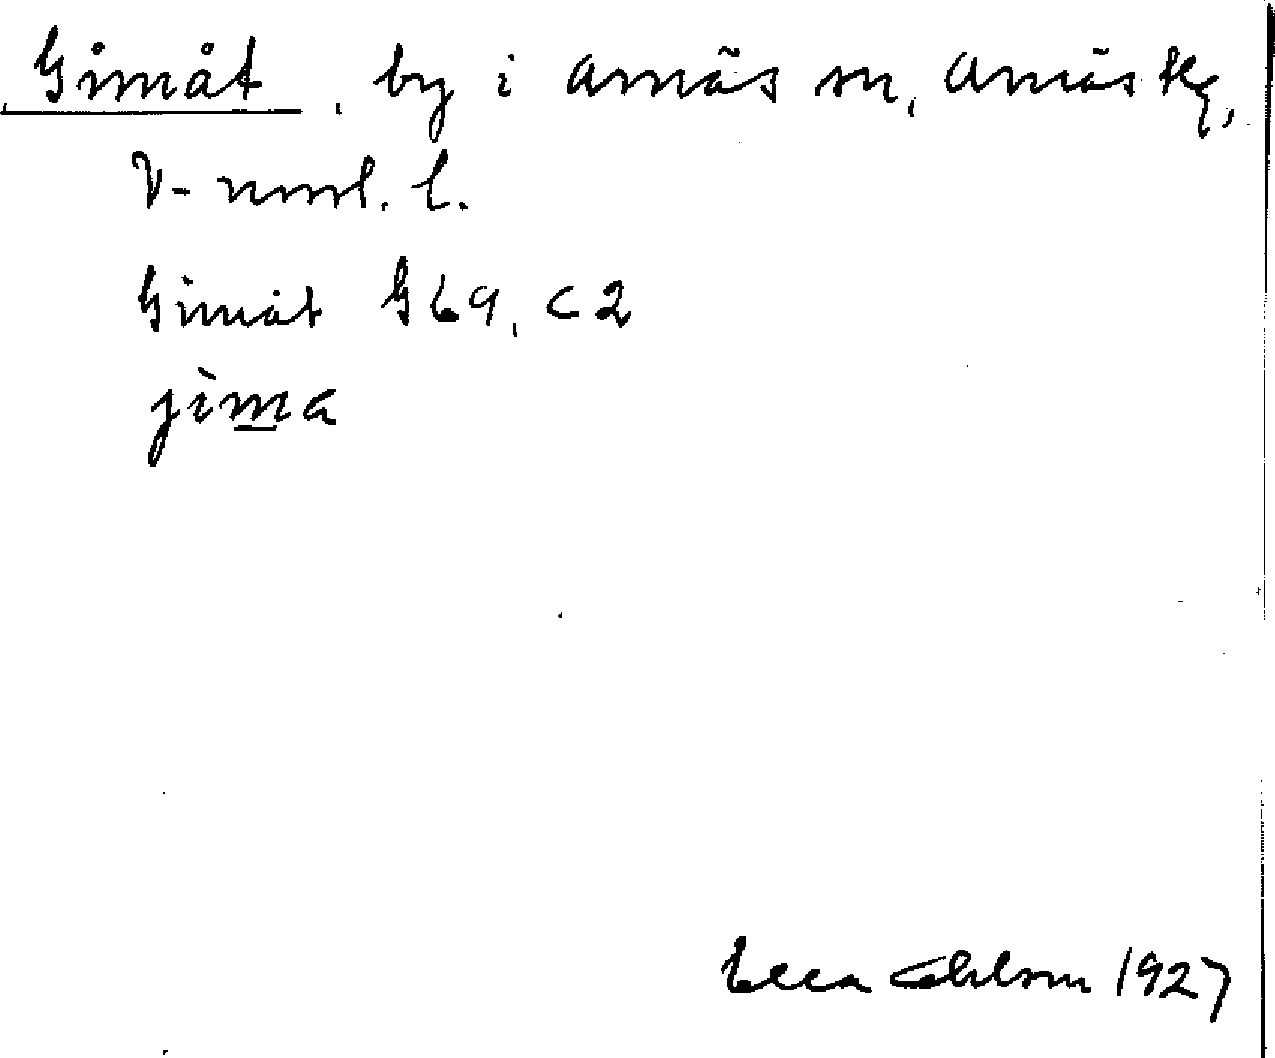 Gimåt, by i Arnäs sn, Arnäs tg,
V-nrrl. l.
Gimåt G69, C2
jìma
Ella Ohlson 1927